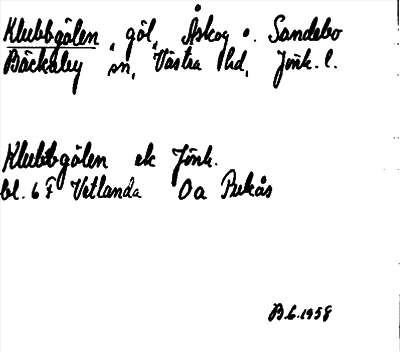 Klubbgölen, göl, Åskog o. Sandebo
Bäckaby sn, Västra hd, Jönk. l.
Klubbgölen ek Jönk.
bl. 6 F Vetlanda Oa Pukås
B.6.1958